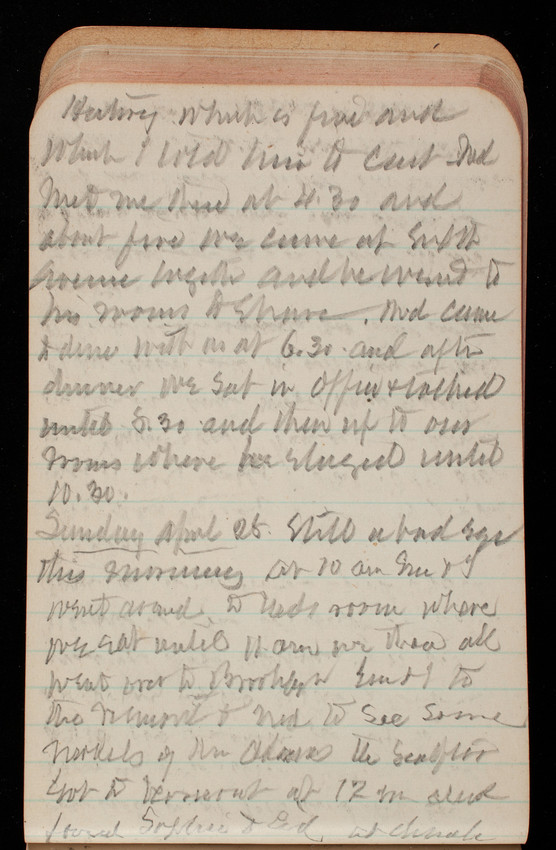 which is fine and
which I told him to cast Ned
met me there at 4.30 and
about five we came up Sixth
Avenue together and he went to
his rooms to shave. Ned came
to dine with us at 6.30. and after
dinner we sat in office & talked
until 8.30 and then up to our
rooms where he stayed until
10.30.
Sunday April 25. Still a bad eye
this morning at 10 am Em & I
went around to Neds room where
we sat until 11 am we three all
went over to Brooklyn Em & I to
the Vermont & Ned to see some
models of the sculptor
Got to Vermont at 12 m and
found Sophie & Ed at